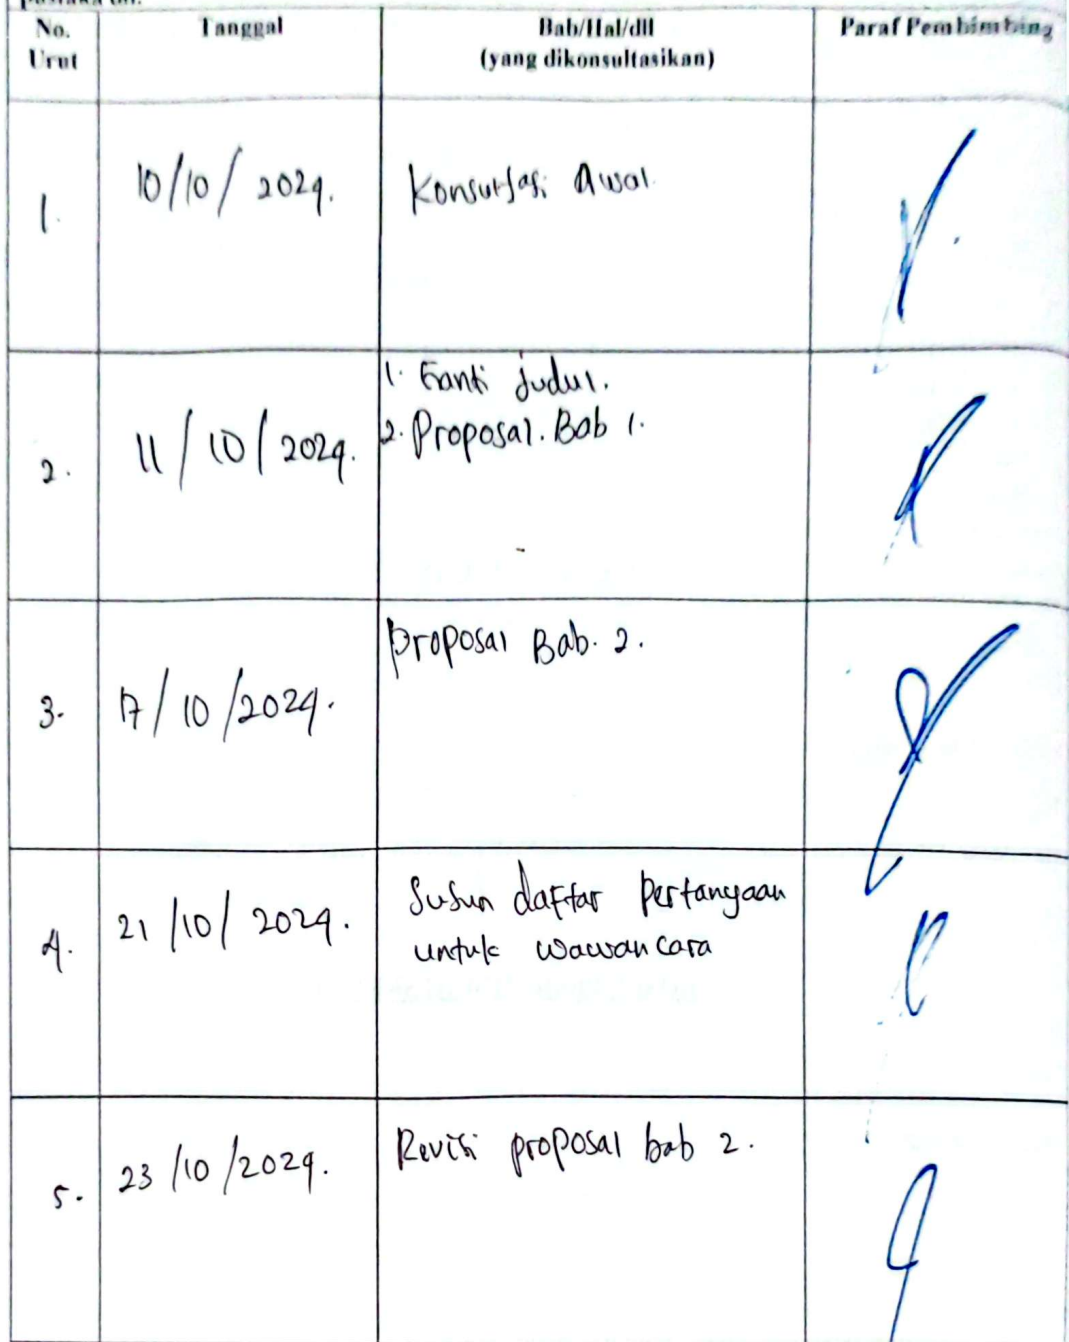 No.
Urut
Tanggal
Bab/Hal/dll
(yang dikonsultasikan)
Paraf Pembimbing
1.
10/10/2024.
Konsultasi Awal.
2.
11/10/2024.
1. Ganti judul.
2. Proposal. Bab 1.
3.
17/10/2024.
Proposal Bab. 2.
4.
21/10/2024.
Susun daftar Pertanyaan
untuk wawancara
5.
23/10/2024.
Revisi proposal bab 2.